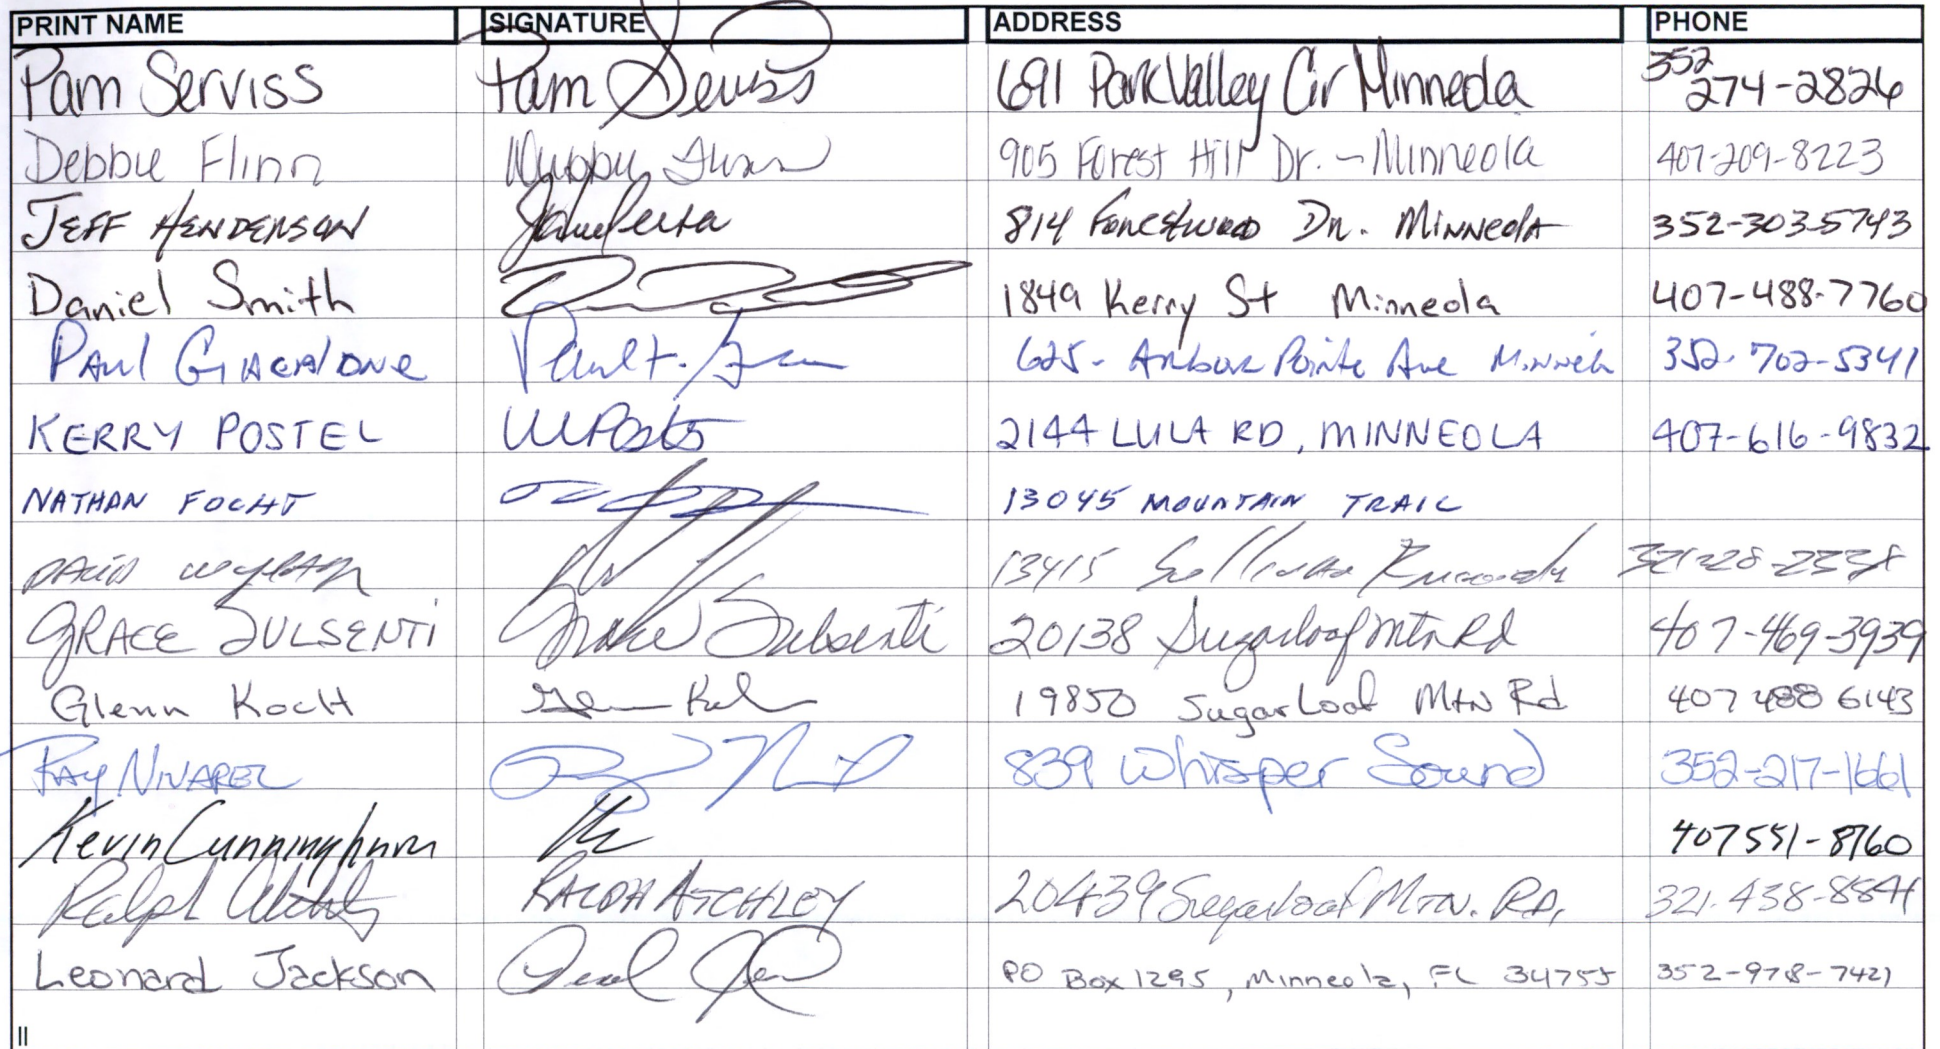 PRINT NAME SIGNATURE ADDRESS PHONE
Pam Serviss Pam Serviss 691 Park Valley Cir Minneola 352 274-2826
Debbie Flinn 905 Forest Hill Dr. - Minneola 407-209-8223
JEFF HENDERSON 814 Forestwood Dr. Minneola 352-303-5743
Daniel Smith 1849 Kerry St Minneola 407-488-7760
PAUL GIACALONE 625- Arbor Pointe Ave Minneola 352-702-5341
KERRY POSTEL 2144 LULA RD, MINNEOLA 407-616-9832
NATHAN FOCHT 13045 MOUNTAIN TRAIL
DAVID 13415
GRACE JULSENTI Grace Julsenti 20138 Sugarloaf Mtn Rd 407-469-3939
Glenn Kocht 19850 Sugar Loaf Mtn Rd 407 488 6143
RAY 839 Whisper Sound 352-217-1661
Kevin Cunningham 407 551-8760
Ralph Atchley RALPH ATCHLEY 20439 Sugarloaf MTN. RD. 321-438-8841
Leonard Jackson PO Box 1295, Minneola, FL 34755 352-978-7421